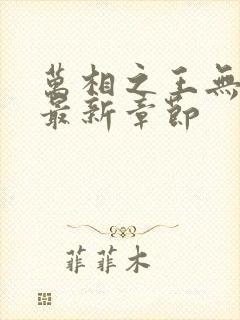 萬相之王無
最新章節
菲菲木